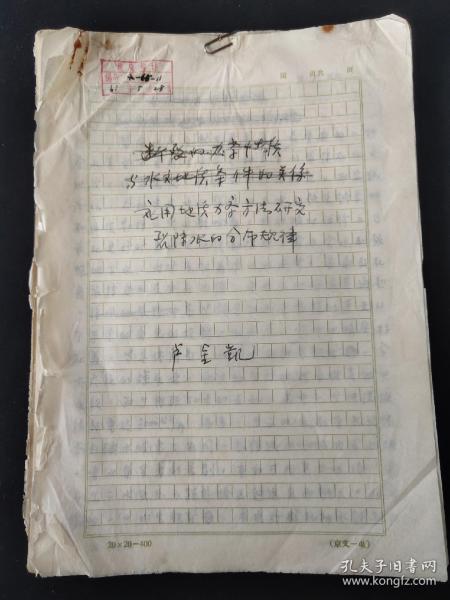 第 页共 页
断裂的力学性质
与水文地质条件的关系
应用地质力学方法研究
裂隙水的分布规律
卢金凯
20×20=400
(京文—电)
孔夫子旧书网
www.kongfz.com